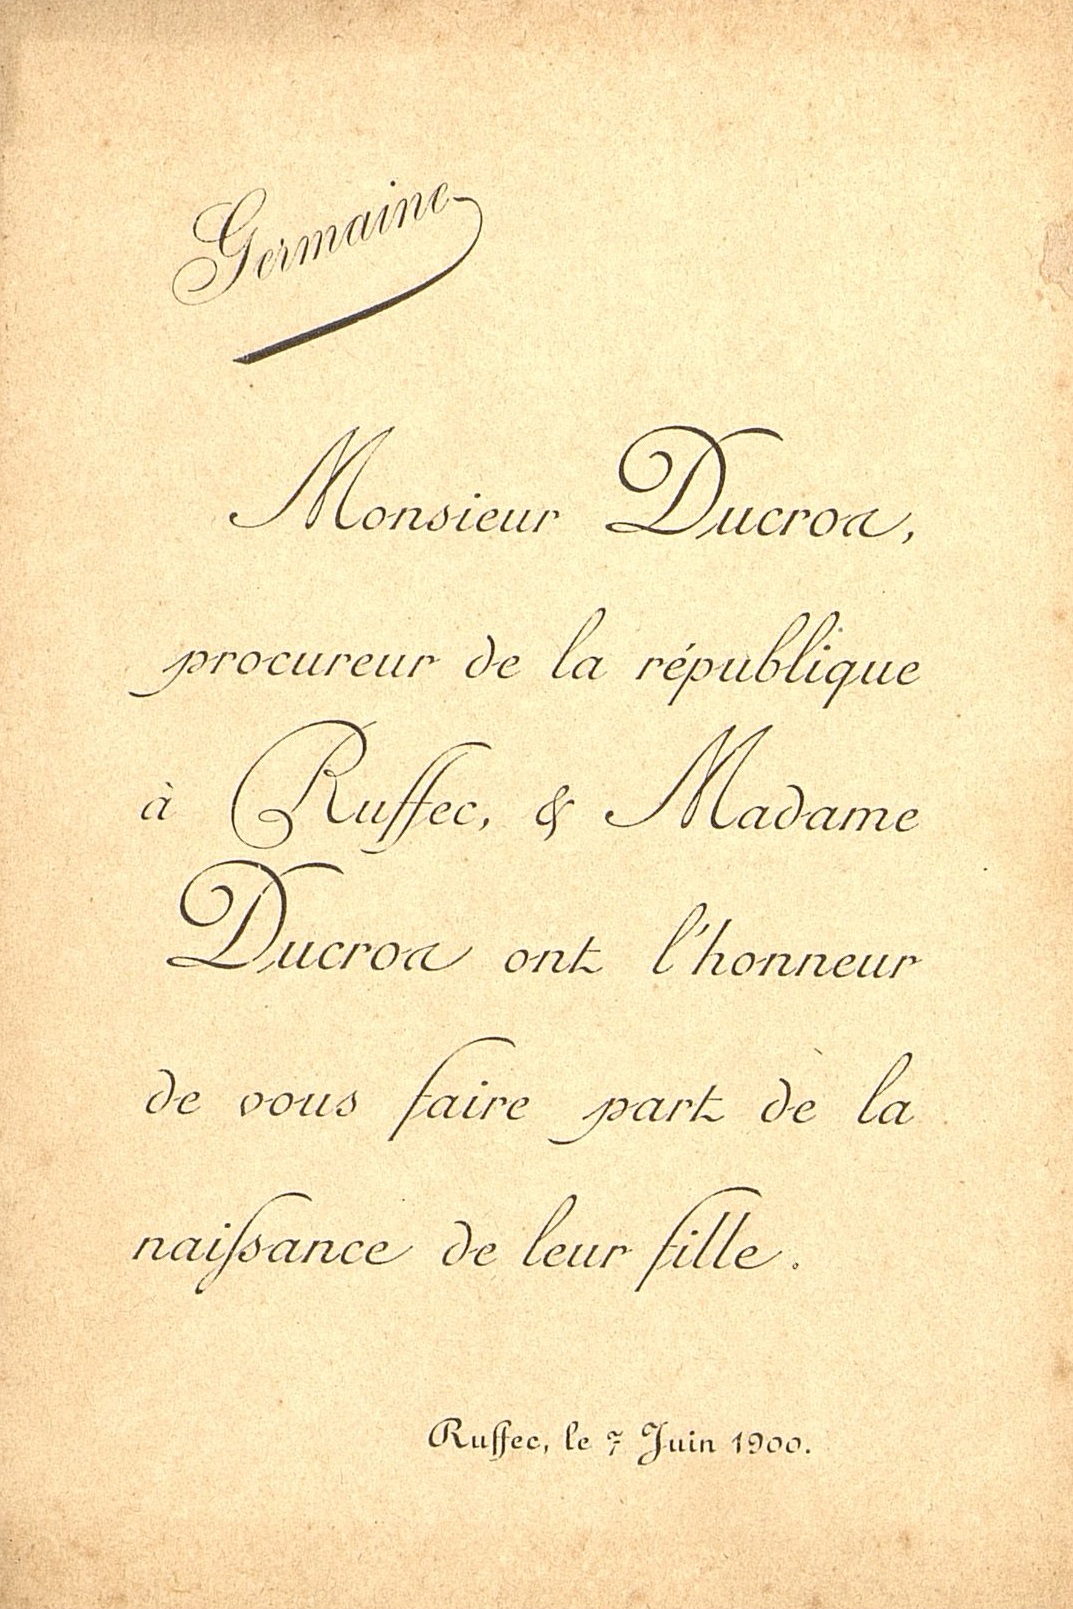 Germaine
Monsieur Ducroa,
procureur de la république
à Ruffec, & Madame
Ducroa ont l'honneur
de vous faire part de la
naiſsance de leur fille.
Ruffec, le 7 Juin 1900.